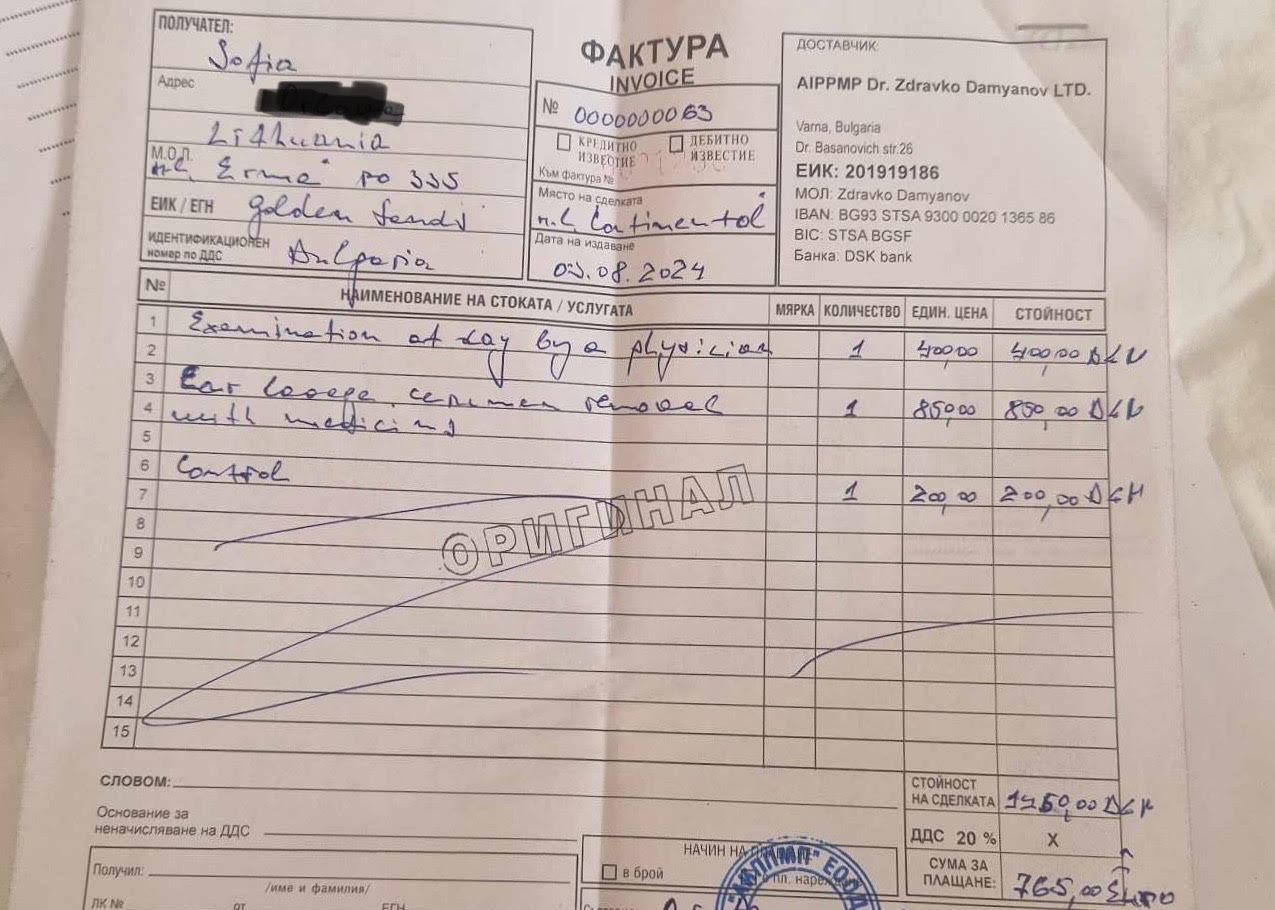 ПОЛУЧАТЕЛ:
Sofia
Адрес
Lithuania
М.О.Л.
н.с. Erma" ро 335
ЕИК / ЕГН golden Sends
ИДЕНТИФИКАЦИОНЕН
номер по ДДС Bulgaria
ФАКТУРА
INVOICE
№ 0000000063
КРЕДИТНО ИЗВЕСТИЕ
ДЕБИТНО ИЗВЕСТИЕ
Към фактура №
Място на сделката
н.с. Continental"
Дата на издаване
03.08.2024
ДОСТАВЧИК:
AIPPMP Dr. Zdravko Damyanov LTD.
Varna, Bulgaria
Dr. Basanovich str.26
ЕИК: 201919186
МОЛ: Zdravko Damyanov
IBAN: BG93 STSA 9300 0020 1365 86
BIC: STSA BGSF
Банка: DSK bank
№ НАИМЕНОВАНИЕ НА СТОКАТА / УСЛУГАТА МЯРКА КОЛИЧЕСТВО ЕДИН. ЦЕНА СТОЙНОСТ
1 Examination at day by a physician
2 1 400,00 400,00 BGN
3 Ear lavage, cerumen removal
4 with medicins 1 850,00 850,00 BGN
5
6 Control
7 1 200,00 200,00 BGN
8
ОРИГИНАЛ
9
10
11
12
13
14
15
СЛОВОМ:
СТОЙНОСТ
НА СДЕЛКАТА 1450,00 BGN
Основание за
неначисляване на ДДС
ДДС 20 % X
СУМА ЗА
ПЛАЩАНЕ: 765,00 Euro
Получил:
/име и фамилия/
ЛК № от ЕГН
НАЧИН НА
в брой
пл. нареж
"АИППМП" ЕООД